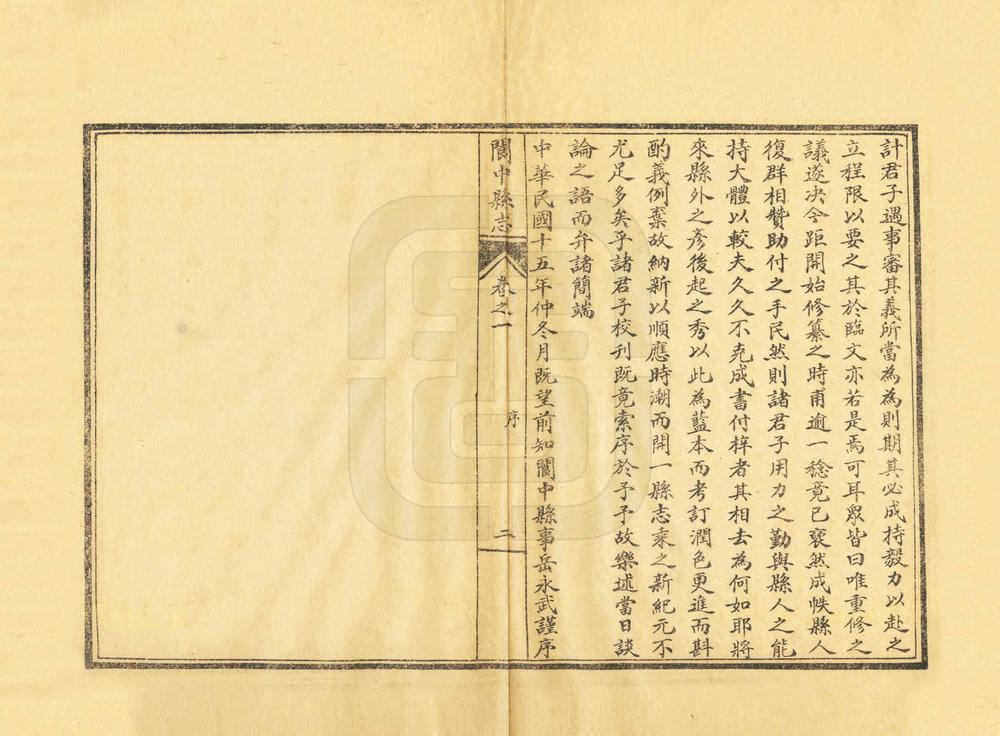 計君子遇事審其義所當為為則期其必成持毅力以赴之
立程限以要之其於臨文亦若是焉可耳眾皆曰唯重修之
議遂決今距開始修纂之時甫逾一稔竟已裒然成帙縣人
復群相贊助付之手民然則諸君子用力之勤與縣人之能
持大體以較夫久久不克成書付梓者其相去為何如耶將
來縣外之彥後起之秀以此為藍本而考訂潤色更進而斟
酌義例棄故納新以順應時潮而開一縣志乘之新紀元不
尤足多矣乎諸君子校刊既竟索序於予予故樂述當日談
論之語而弁諸簡端
中華民國十五年仲冬月既望前知閬中縣事岳永武謹序
閬中縣志
卷之一
序
二